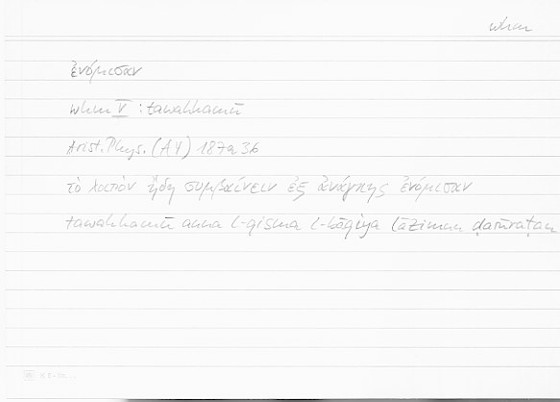 whm
ἐνόμισαν
whm V : tawahhamū
Arist. Phys. (A 4) 187a 36
τὸ λοιπὸν ἤδη συμβαίνειν ἐξ ἀνάγκης ἐνόμισαν
tawahhamū anna l-qisma l-bāqiya lāzimun ḍarūratan